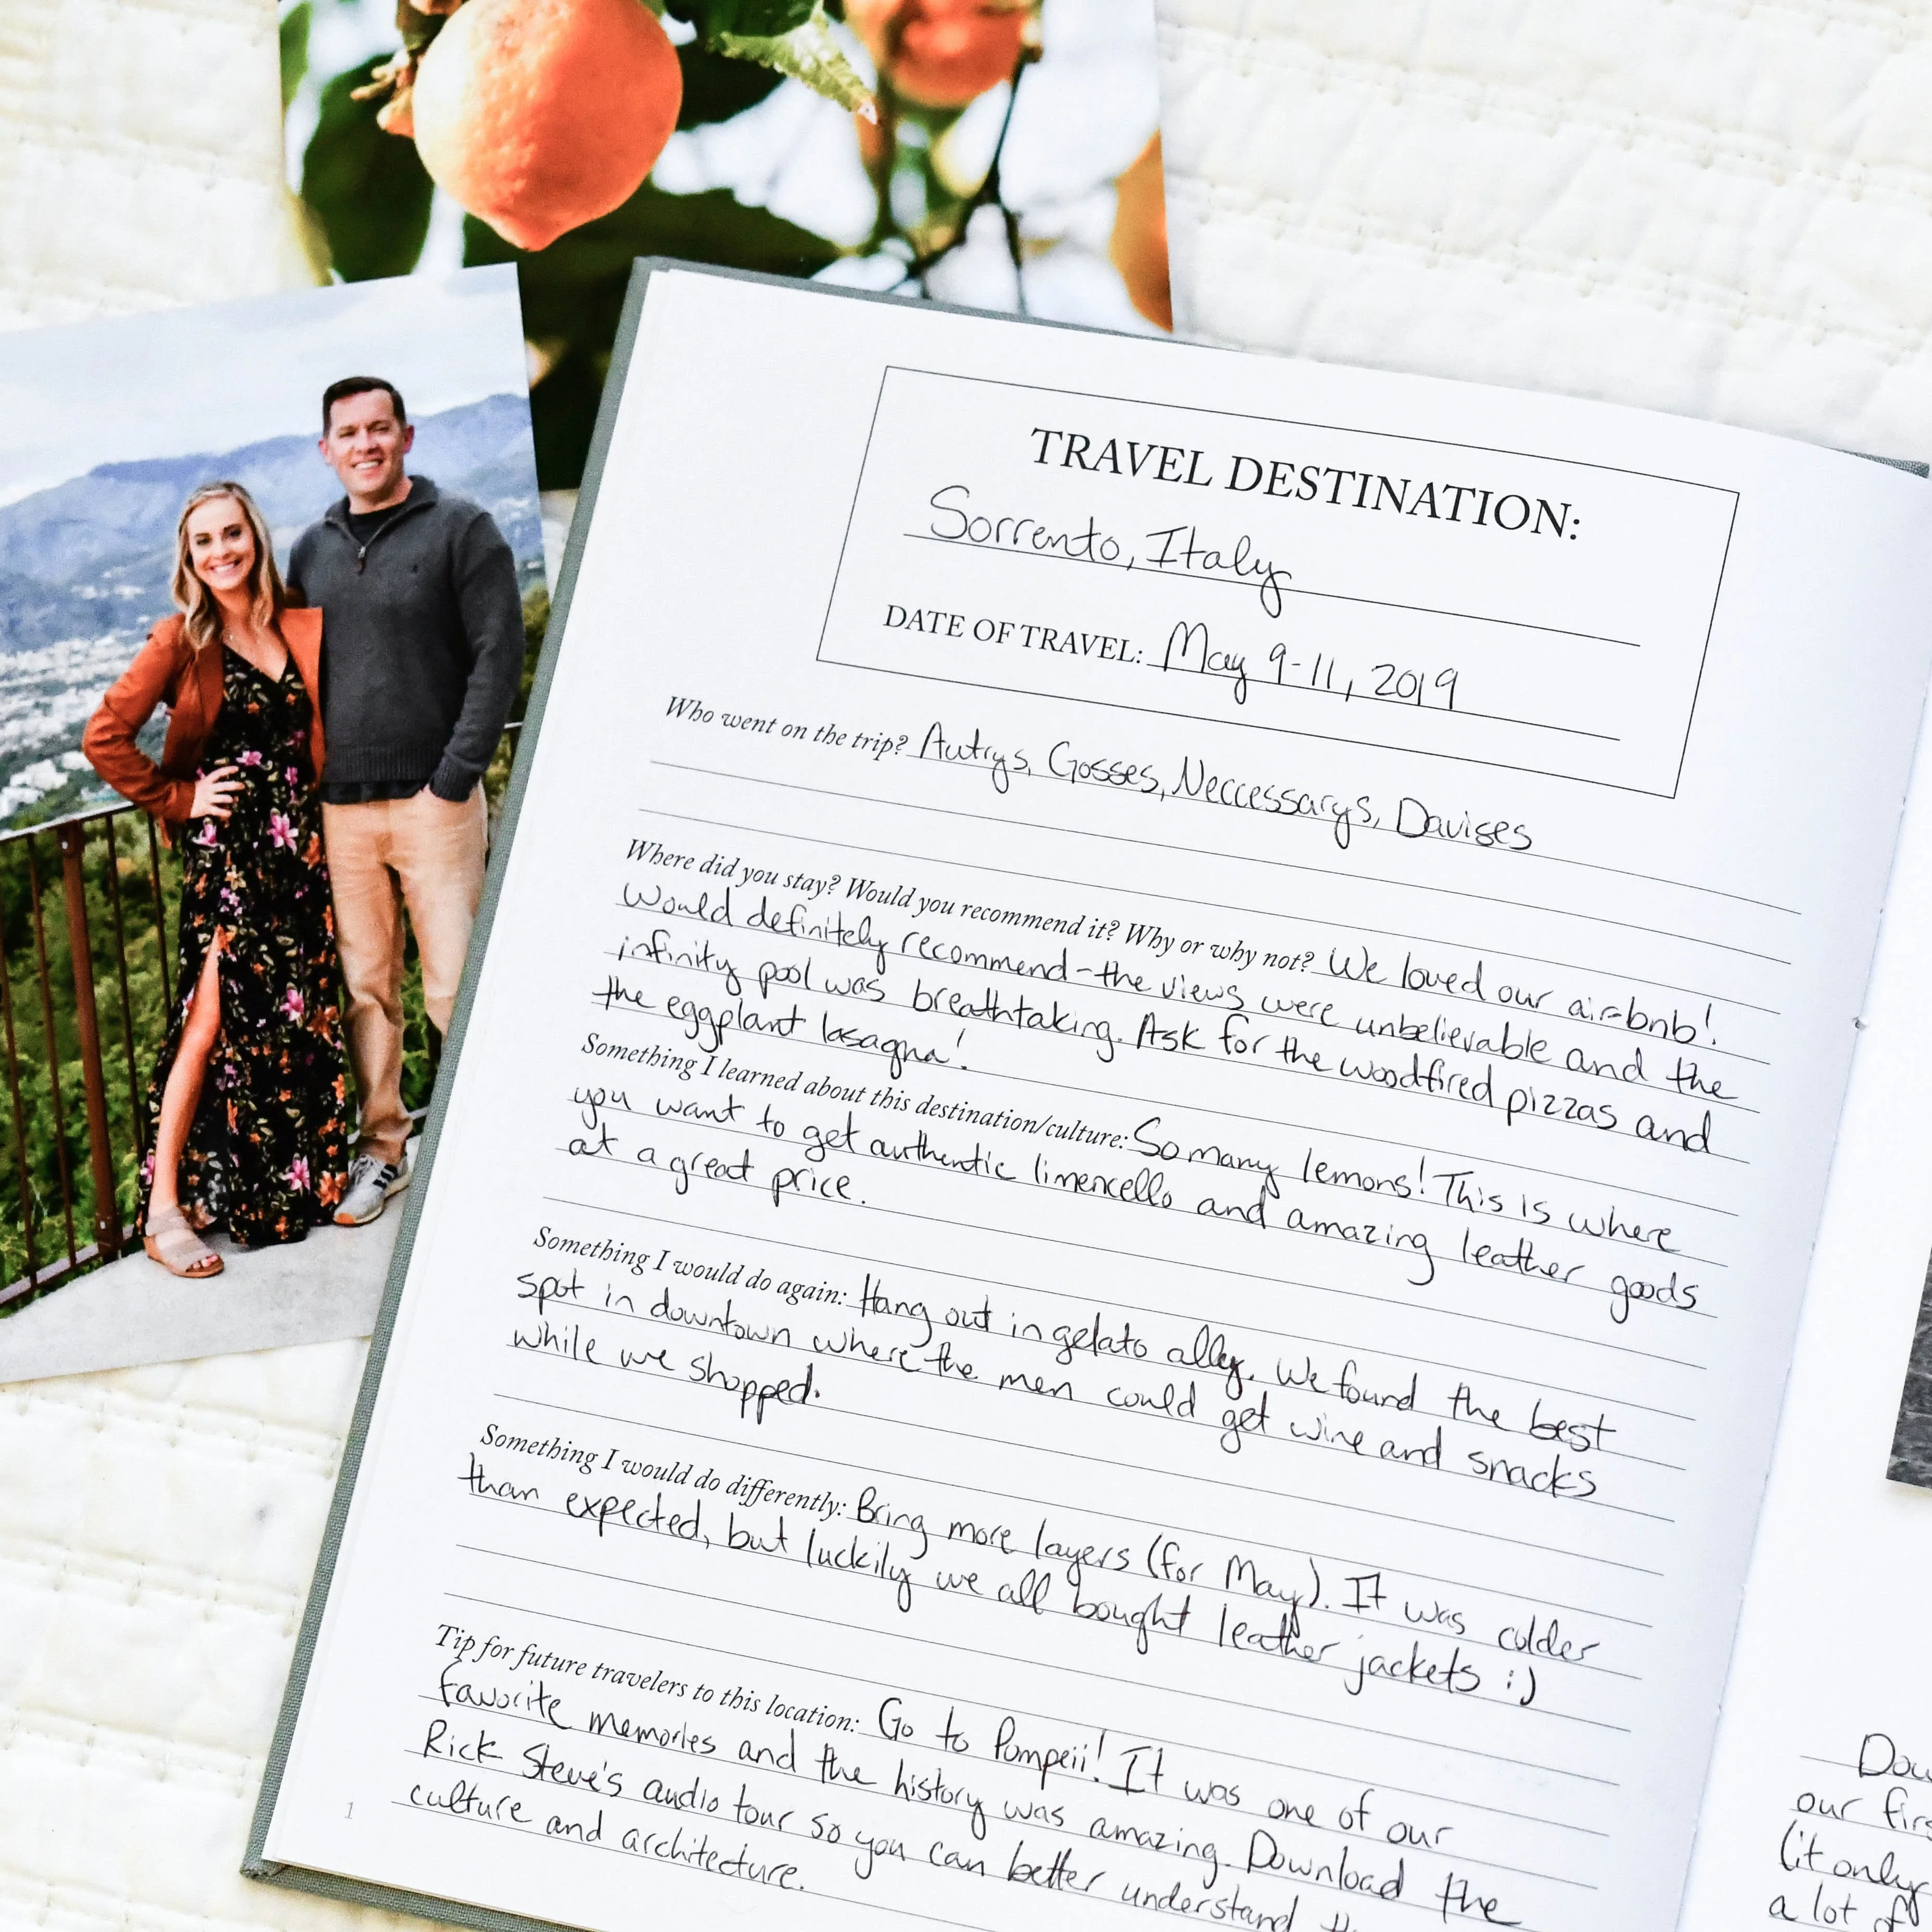 TRAVEL DESTINATION:
Sorrento, Italy
DATE OF TRAVEL: May 9-11, 2019
Who went on the trip? Autrys, Gosses, Neccessarys, Davises
Where did you stay? Would you recommend it? Why or why not? We loved our airbnb!
Would definitely recommend - the views were unbelievable and the
infinity pool was breathtaking. Ask for the woodfired pizzas and
the eggplant lasagna!
Something I learned about this destination/culture: So many lemons! This is where
you want to get authentic limencello and amazing leather goods
at a great price.
Something I would do again: Hang out in gelato alley. We found the best
spot in downtown where the men could get wine and snacks
while we shopped.
Something I would do differently: Bring more layers (for May). It was colder
than expected, but luckily we all bought leather jackets :)
Tip for future travelers to this location: Go to Pompeii! It was one of our
favorite memories and the history was amazing. Download the
Rick Steve's audio tour so you can better understand
culture and architecture.
1
our
(it only
a lot of